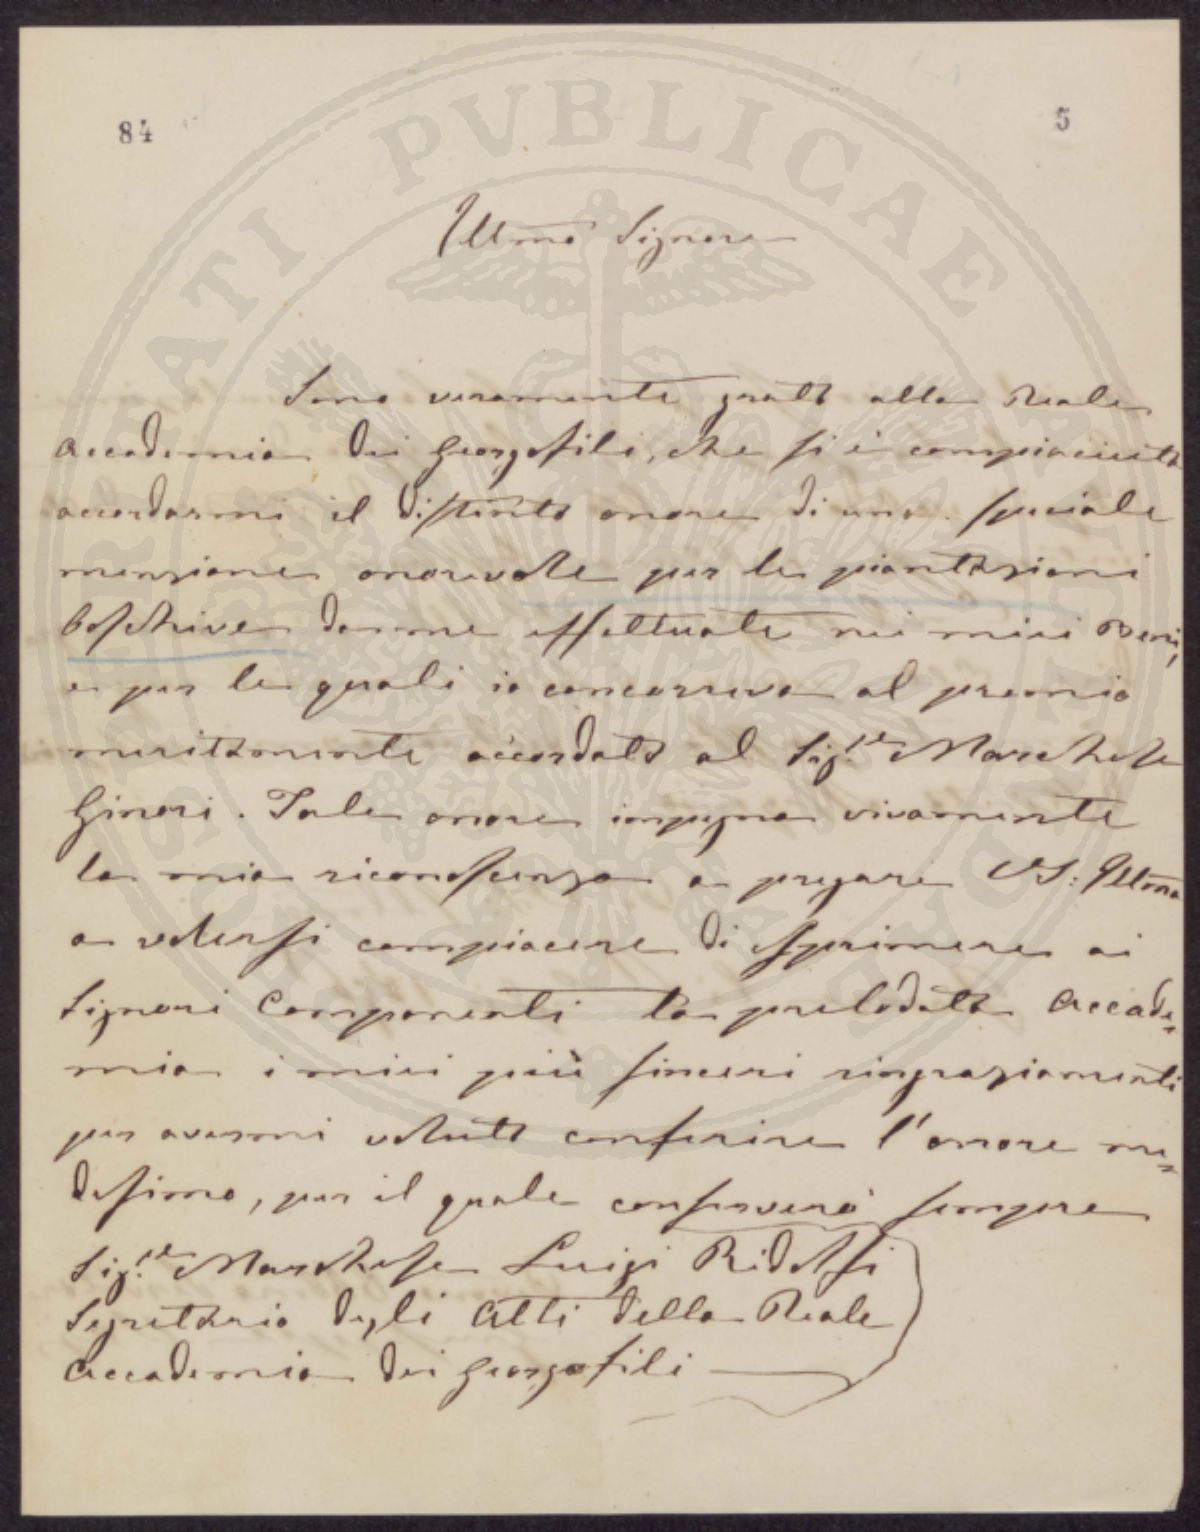 84
5
Illmo Signore
Sono veramente grato alla Reale
Accademia dei Georgofili, che si è compiaciuta
accordarmi il distinto onore di una speciale
menzione onorevole per le piantazioni
boschive da me effettuate nei miei Beni,
e per le quali io concorreva al premio
meritamente accordato al Sigre Marchese
Ginori. Tale onore impegna vivamente
la mia riconoscenza a pregare VS: Illma
a volersi compiacere di esprimere ai
Signori Componenti la prelodata Accade=
mia i miei più sinceri ringraziamenti
per avermi voluto conferire l'onore me=
desimo, per il quale conserverò sempre
Sigre Marchese Luigi Ridolfi
Segretario degli Atti della Reale
Accademia dei Georgofili
PUBLICAE